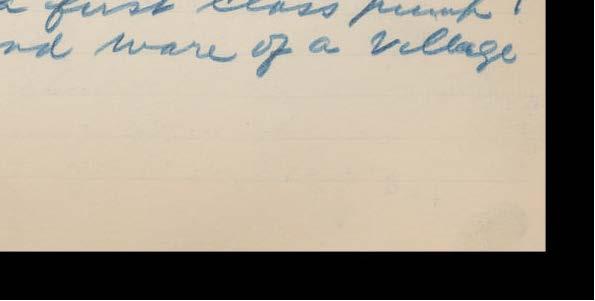 a first class punk!
nd ware of a village